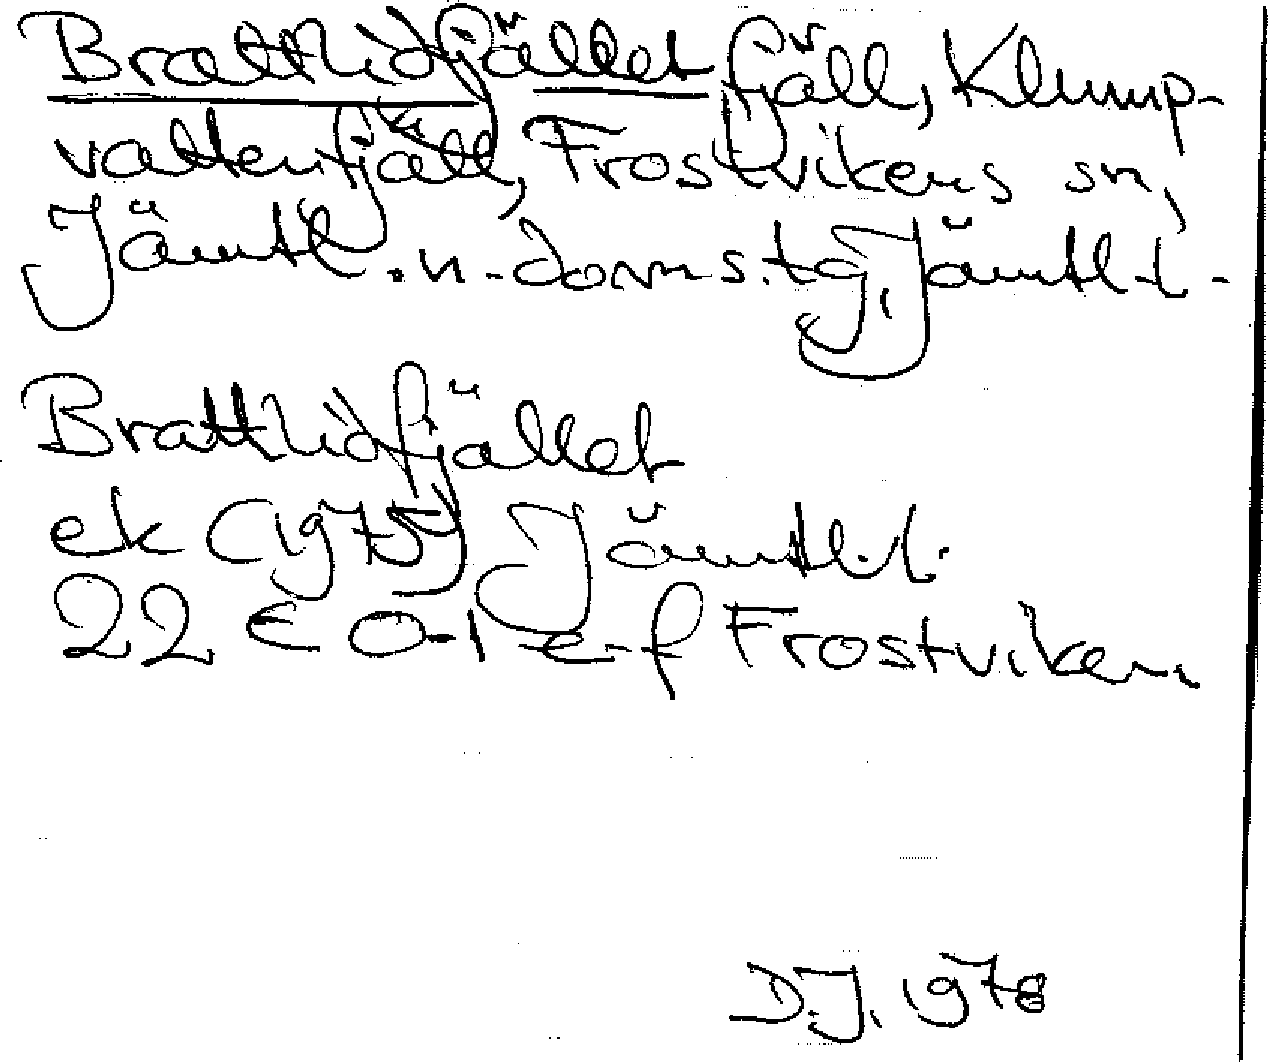 Brattlidfjället fjäll, Klump-
vattenfjäll, Frostvikens sn,
Jämtl. n. doms. tg, Jämtl. l.
Brattlidfjället
ek (1975) Jämtl. l.
22 E 0-1 e-f Frostviken
D.J. 1978